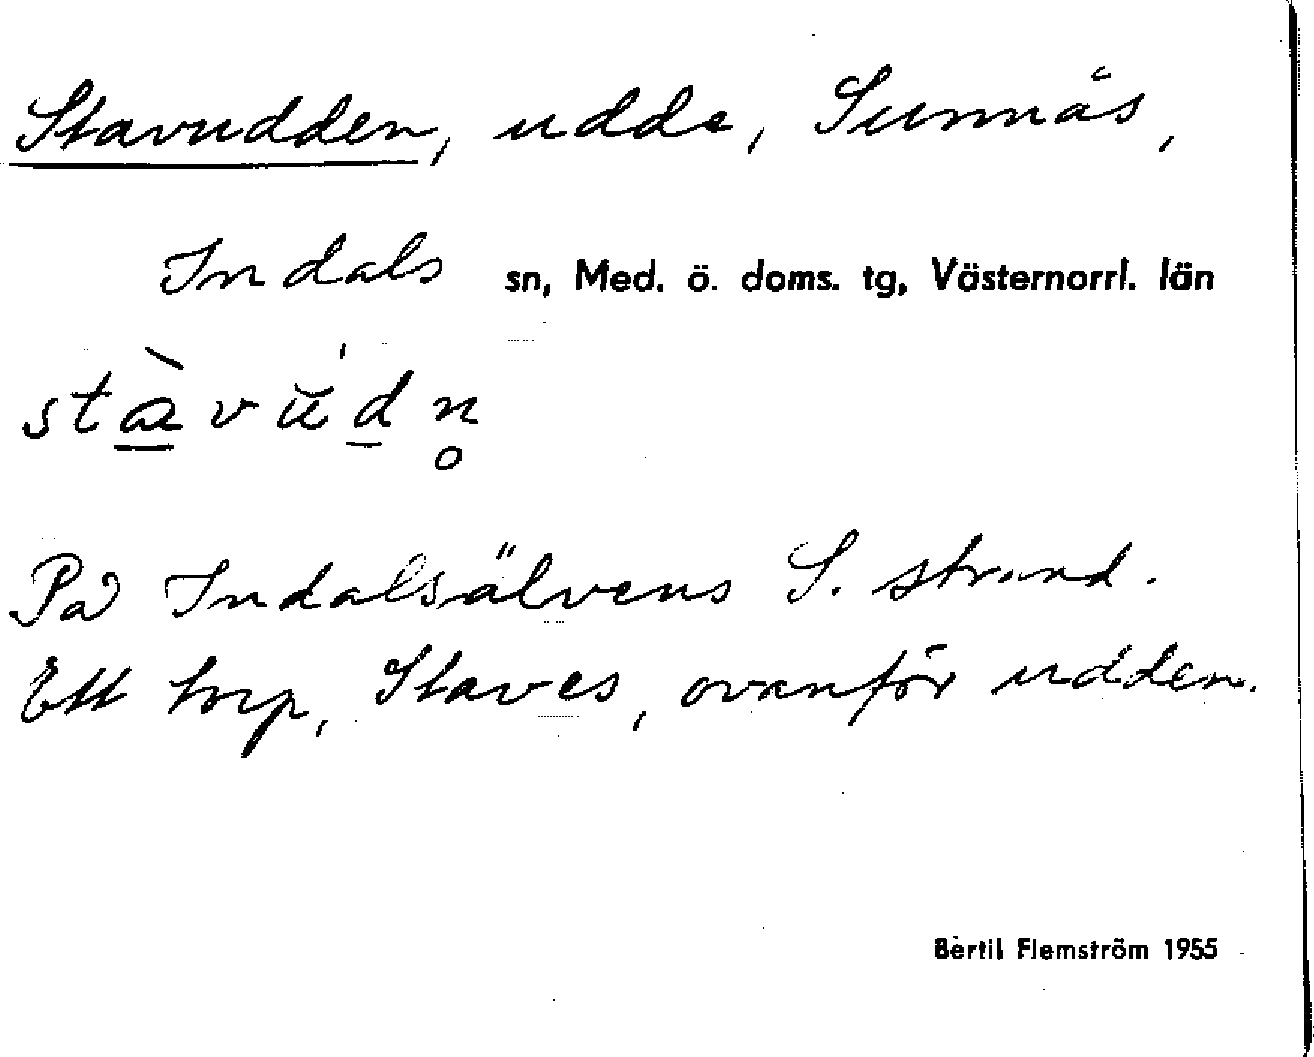 Stavudden, udde, Sunnås,
Indals sn, Med. ö. doms. tg, Västernorrl. län
stàvŭ'dn̥
På Indalsälvens S. strand.
Ett torp, Staves, ovanför udden.
Bertil Flemström 1955